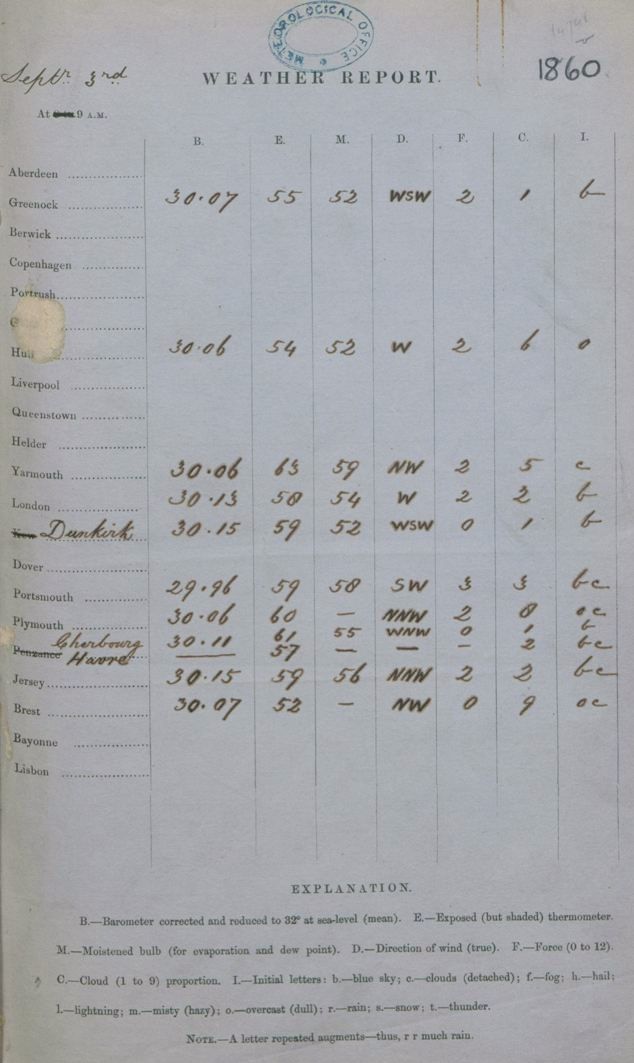 METEOROLOGICAL OFFICE
Septr 3rd WEATHER REPORT. 1860
At 9 A.M.
B. E. M. D. F. C. I.
Aberdeen
Greenock 30.07 55 52 WSW 2 1 b
Berwick
Copenhagen
Portrush
Hull 30.06 54 52 W 2 6 o
Liverpool
Queenstown
Helder
Yarmouth 30.06 63 59 NW 2 5 c
London 30.13 58 54 W 2 2 b
Dunkirk 30.15 59 52 WSW 0 1 b
Dover
Portsmouth 29.96 59 58 SW 3 3 bc
Plymouth 30.06 60 — NNW 2 8 oc
Cherbourg 30.11 61 55 WNW 0 1 b
Penzance Havre — 57 — — — 2 bc
Jersey 30.15 59 56 NNW 2 2 bc
Brest 30.07 52 — NW 0 9 oc
Bayonne
Lisbon
EXPLANATION.
B.—Barometer corrected and reduced to 32° at sea-level (mean). E.—Exposed (but shaded) thermometer.
M.—Moistened bulb (for evaporation and dew point). D.—Direction of wind (true). F.—Force (0 to 12).
C.—Cloud (1 to 9) proportion. I.—Initial letters: b.—blue sky; c.—clouds (detached); f.—fog; h.—hail;
l.—lightning; m.—misty (hazy); o.—overcast (dull); r.—rain; s.—snow; t.—thunder.
NOTE.—A letter repeated augments—thus, r r much rain.